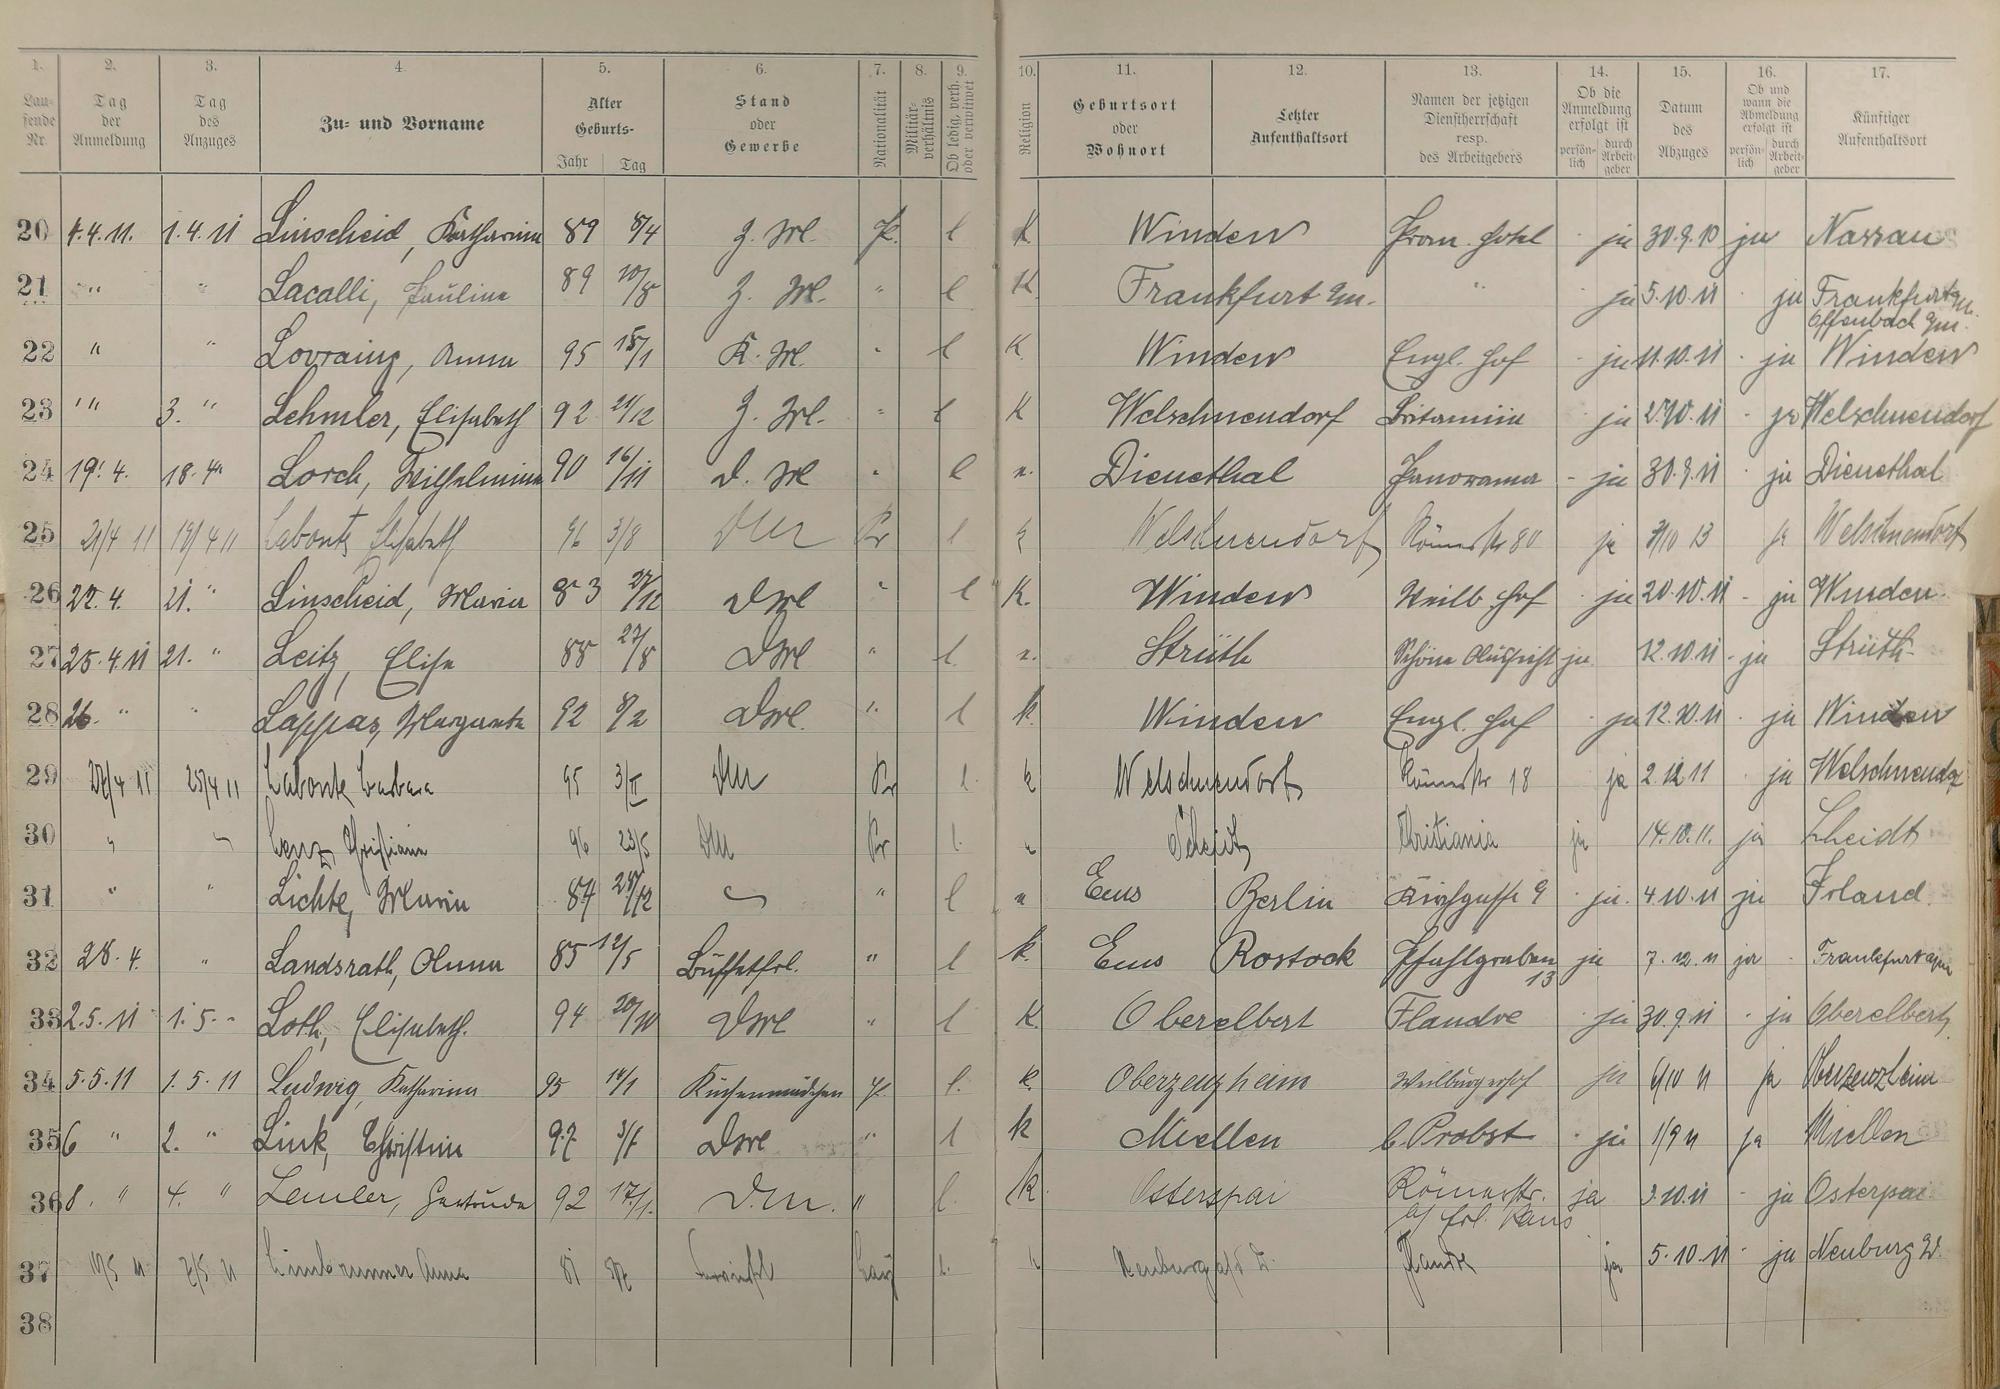 1. 2. 3. 4. 5. 6. 7. 8. 9. 10. 11. 12. 13. 14. 15. 16. 17.
Laufende Nr. Tag der Anmeldung Tag des Anzuges Zu- und Vorname Alter Geburts- Jahr Tag Stand oder Gewerbe Nationalität Militärverhältnis Ob ledig, verh. oder verwitwet Religion Geburtsort oder Wohnort Letzter Aufenthaltsort Namen der jetzigen Dienstherrschaft resp. des Arbeitgebers Ob die Anmeldung erfolgt ist persönlich durch Arbeitgeber Datum des Abzuges Ob und wann die Abmeldung erfolgt ist persönlich durch Arbeitgeber Künftiger Aufenthaltsort
20 4.4.11. 1.4.11 Linscheid, Katharina 89 8/4 Z. Ml. P. l K. Winden Prom. Hotel ja 30.9.10 ja Nassau
21 " " Lacalli, Paulina 89 10/8 Z. Ml. " l K. Frankfurt a/m. " ja 5.10.11 ja Frankfurt a/m. Offenbach a/m.
22 " " Lovraing, Anna 95 15/1 K. Ml. " l K. Winden Engl. Hof ja 11.10.11 ja Winden
23 " 3. " Lehmler, Elisabeth 92 21/12 Z. Ml. " l K Welschneudorf Britannia ja 27.10.11 ja Welschneudorf
24 19.4. 18.4. Lorch, Wilhelmina 90 16/11 D. Ml " l Dienethal Panorama ja 30.9.11 ja Dienethal
25 21/4 11 19/4 11 Labonte Elisabeth 96 3/8 DM Pr l Welschneudorf Römerstr 80 ja 3/10 13 ja Welschneudorf
26 22.4. 21. " Linscheid, Maria 83 27/12 DMl " l K. Winden Weilb. Hof ja 20.10.11 ja Winden
27 25.4.11 21. " Leitz, Elise 88 27/8 DMl " l. Strüth Schöne Aussicht ja 12.10.11 ja Strüth
28 26. " " Lappas, Margareta 92 8/2 DMl. " l k. Winden Engl. Hof ja 12.10.11 ja Winden
29 27/4 11 25/4 11 Labonte Barbara 95 3/II DM Pr l. k Welschneudorf Römerstr 18 ja 2.12.11 ja Welschneudof
30 " " Lenz Christiane 96 23/5 DM Pr l. Christiania ja 14.10.11. ja Scheidt
31 " " Lichte, Maria 87 28/12 " l Ems Berlin Kirchgasse 9 ja. 4.10.11 ja Irland
32 28.4. " Landsrath, Anna 85 12/5 Büffetfrl. " l k. Ems Rostock Pfahlgraben 13 ja 7.12.11 ja Frankfurt a/m
33 2.5.11 1.5. " Loth, Elisabeth. 94 20/10 DMl " l K. Oberelbert Flandre ja 30.9.11 ja Oberelbert
34 5.5.11 1.5.11 Ludwig, Katharina 95 14/1 Küchenmädchen P. l. k. Oberzeuzheim Weilburgerhof ja 6/10 11 ja Oberzeuzheim
35 6 " 2. " Link, Christine 97 3/7 DMl " l k Miellen C. Probst ja 1/9 11 ja Miellen
36 8. " 4. " Lemler, Gertrude 92 17/1. D.M. " l. k. Osterspai Römerstr. ja 3.10.11 ja Osterpai
b/ Frl.
37 10/5 11 7/5 11 Anna 81 l. Neuburg a/d D. Flandre ja 5.10.11 ja Neuburg
38